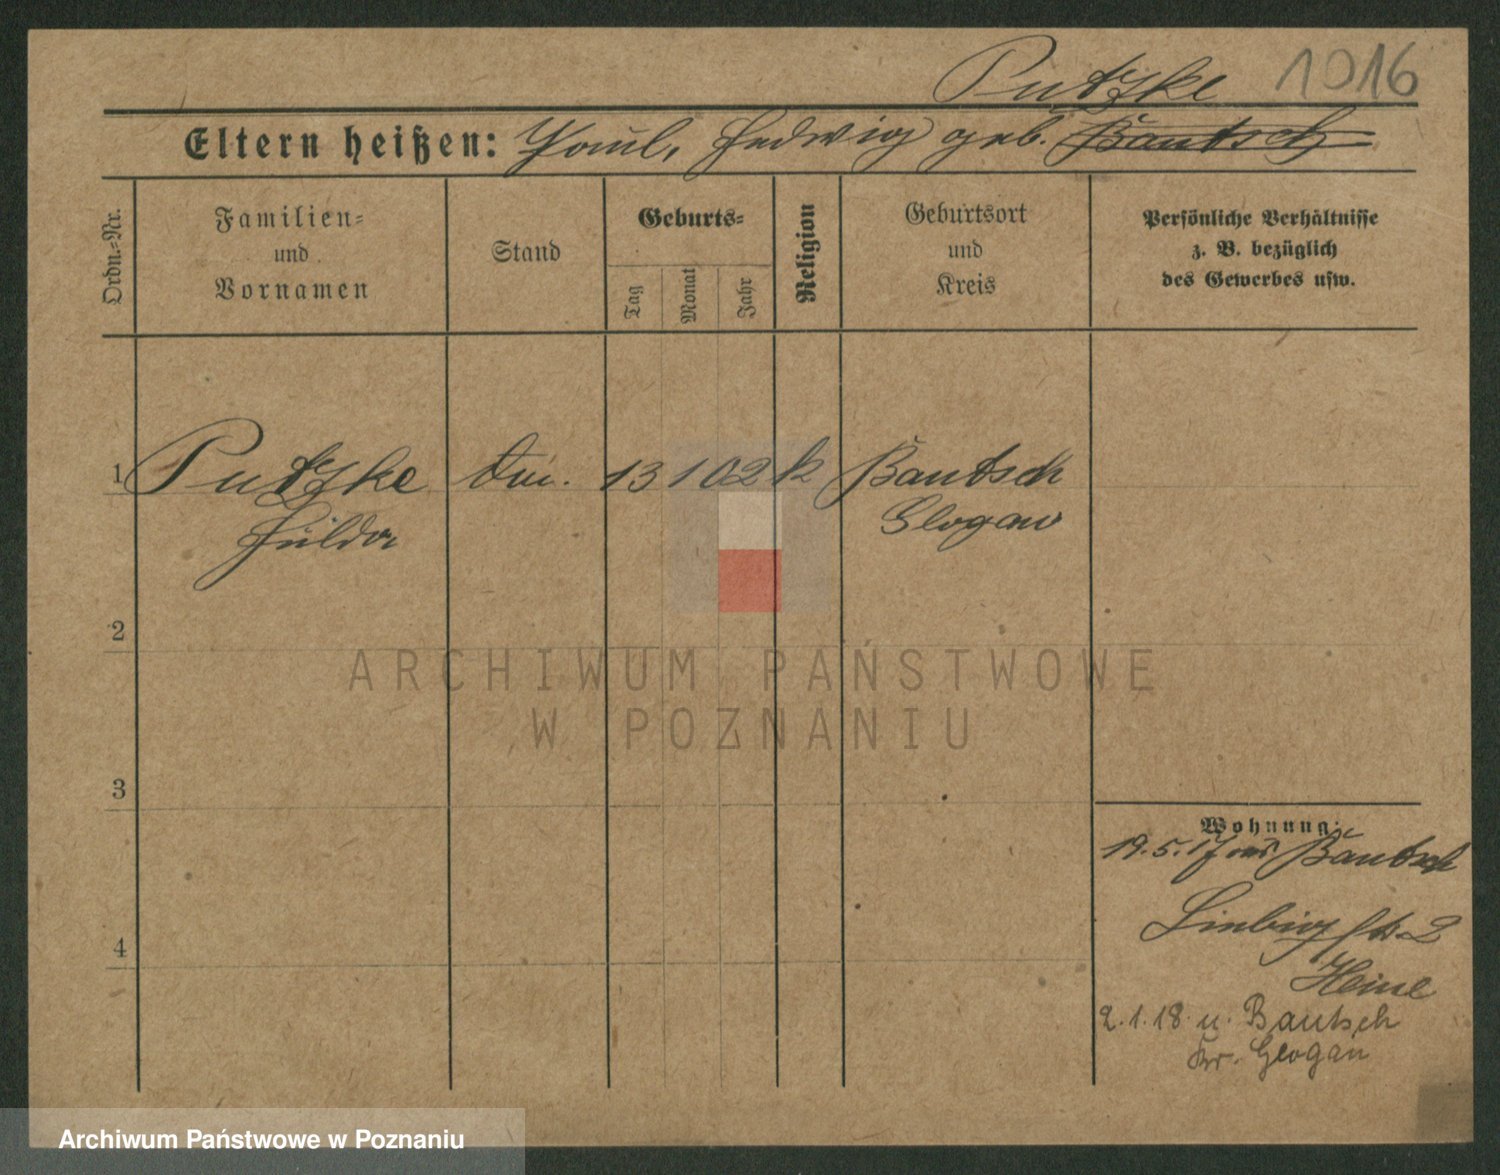 Putzke 1016
Eltern heißen: Paul, Hedwig geb. Bautsch
Ordn.-Nr.
Familien-
und
Vornamen
Stand
Geburts-
Tag
Monat
Jahr
Religion
Geburtsort
und
Kreis
Persönliche Verhältnisse
z. B. bezüglich
des Gewerbes usw.
1 Putzke 13 1 02 k Bautsch
Hulda Glogau
2
3
4
Wohnung:
19.5.17 aus Bautsch
Liebigstr 2
Heine
2.1.18 n. Bautsch
Kr. Glogau
ARCHIWUM PAŃSTWOWE
W POZNANIU
Archiwum Państwowe w Poznaniu